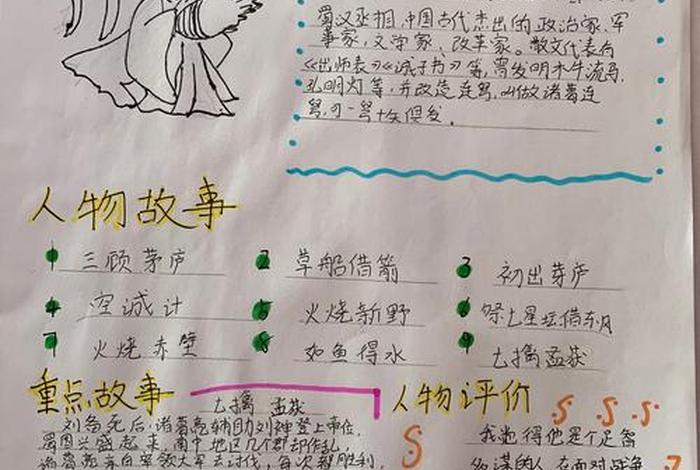 蜀汉丞相,中国古代杰出的政治家、军
事家,文学家、改革家。散文代表有
《出师表》《诫子书》等,曾发明木牛流马、
孔明灯等,并改造连弩,叫做诸葛连
弩,可一弩十矢俱发。
人物故事
1 三顾茅庐
2 草船借箭
3 初出芽庐
4 空诚计
5 火烧新野
6 祭七星坛借东风
7 火烧赤壁
8 如鱼得水
9 七擒孟获
重点故事
七擒 孟获
刘备死后,诸葛亮辅助刘禅登上帝位,
蜀国兴盛起来,南中地区几个郡却作乱,
诸葛亮亲自率领大军去讨伐,每次都胜利,
人物评价
我觉得他是个足智
的人,在面对战争